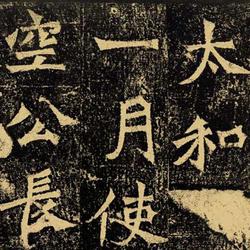 太和
一月使
空公長